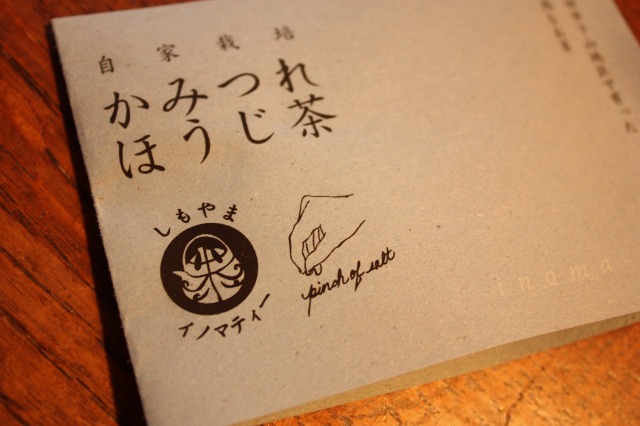 自家栽培
かみつれ
ほうじ茶
しもやま
イノマティー
pinch of salt
inoma